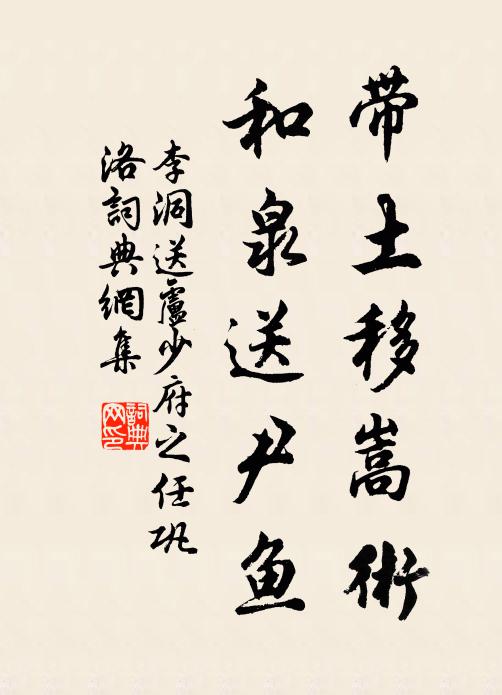 带土移嵩术
和泉送尹鱼
李洞送卢少府之任巩
洛词典网集
词典网印